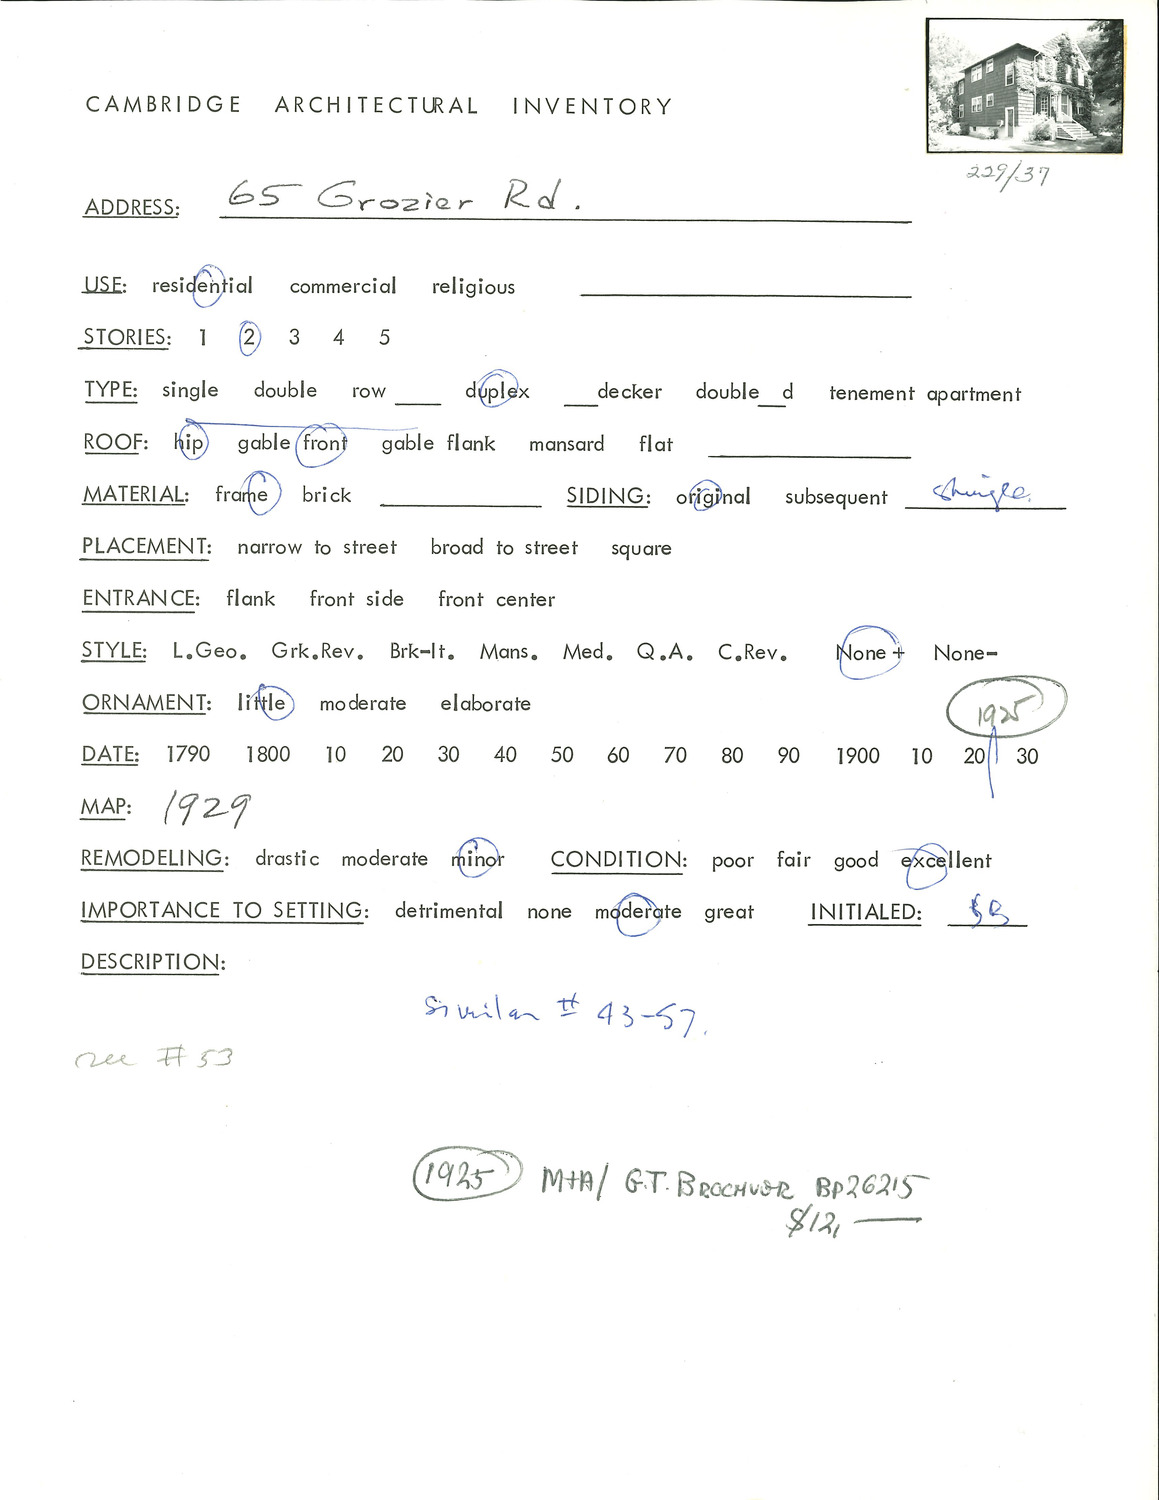 CAMBRIDGE ARCHITECTURAL INVENTORY
229/37
ADDRESS: 65 Grozier Rd.
USE: residential commercial religious
STORIES: 1 2 3 4 5
TYPE: single double row ___ duplex ___decker double__d tenement apartment
ROOF: hip gable front gable flank mansard flat
MATERIAL: frame brick SIDING: original subsequent shingle.
PLACEMENT: narrow to street broad to street square
ENTRANCE: flank front side front center
STYLE: L.Geo. Grk.Rev. Brk-It. Mans. Med. Q.A. C.Rev. None+ None-
ORNAMENT: little moderate elaborate
1925
DATE: 1790 1800 10 20 30 40 50 60 70 80 90 1900 10 20 30
MAP: 1929
REMODELING: drastic moderate minor CONDITION: poor fair good excellent
IMPORTANCE TO SETTING: detrimental none moderate great INITIALED:
DESCRIPTION:
Similar # 43-57.
see # 53
1925 M+A/ G.T. BP26215
$12, —